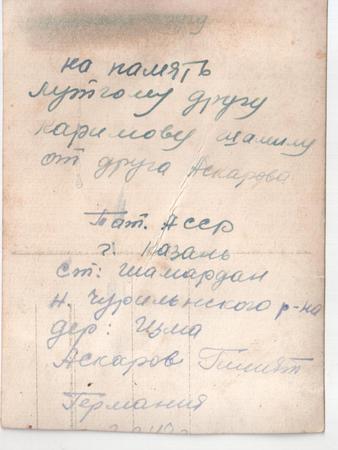 на память
лутгому другу
каримову шамилу
от друга Аскарова
Тат. Асср
г. Казань
ст: шамардан
н. Чурильнского р-на
дер: Цзма
Аскаров
Германия